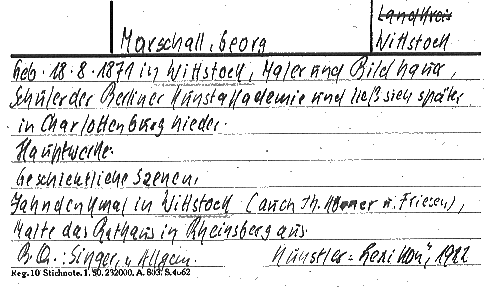 Landkreis
Marschall, Georg Wittstock
Geb. 18.8.1871 in Wittstock, Maler und Bildhauer,
Schüler der Berliner Kunstakademie und ließ sich später
in Charlottenburg nieder.
Hauptwerke:
Geschichtliche Szenen,
Jahndenkmal in Wittstock (auch Th. Körner u. Friesen),
Malte das Rathaus in Rheinsberg aus.
B.Q.: Singer, „Allgem. Künstler-Lexikon", 1922
Reg. 10 Stichnote. 1. 50. 232000. A. 803. S. 4062